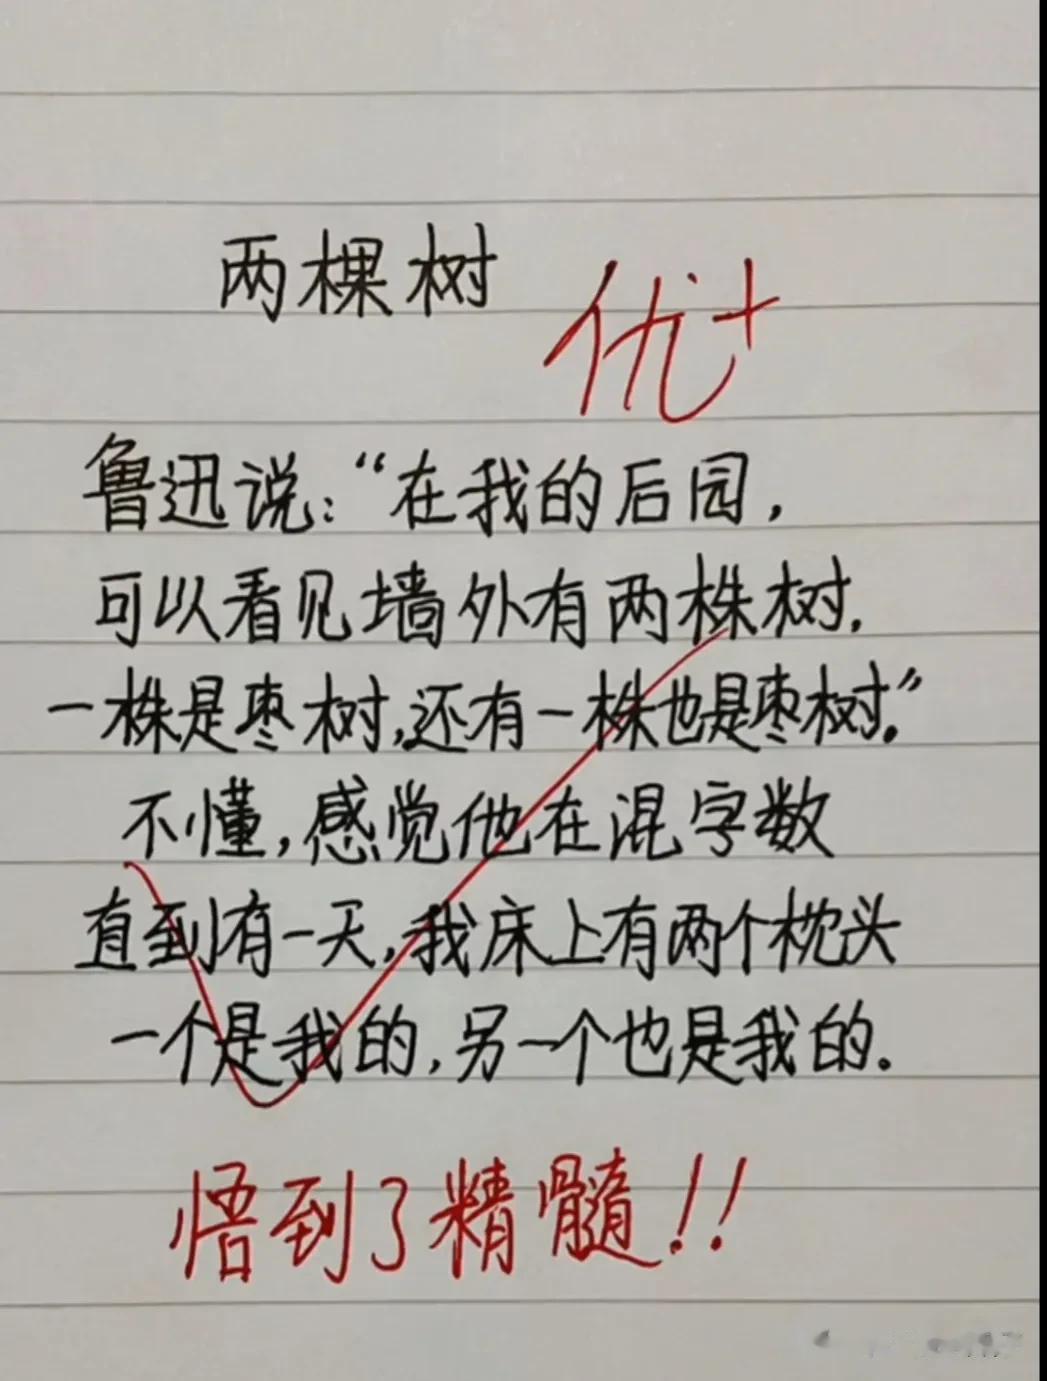 两棵树
优+
鲁迅说：“在我的后园，
可以看见墙外有两株树.
一株是枣树,还有一株也是枣树.”
不懂，感觉他在混字数
直到有一天,我床上有两个枕头
一个是我的,另一个也是我的.
悟到了精髓!!